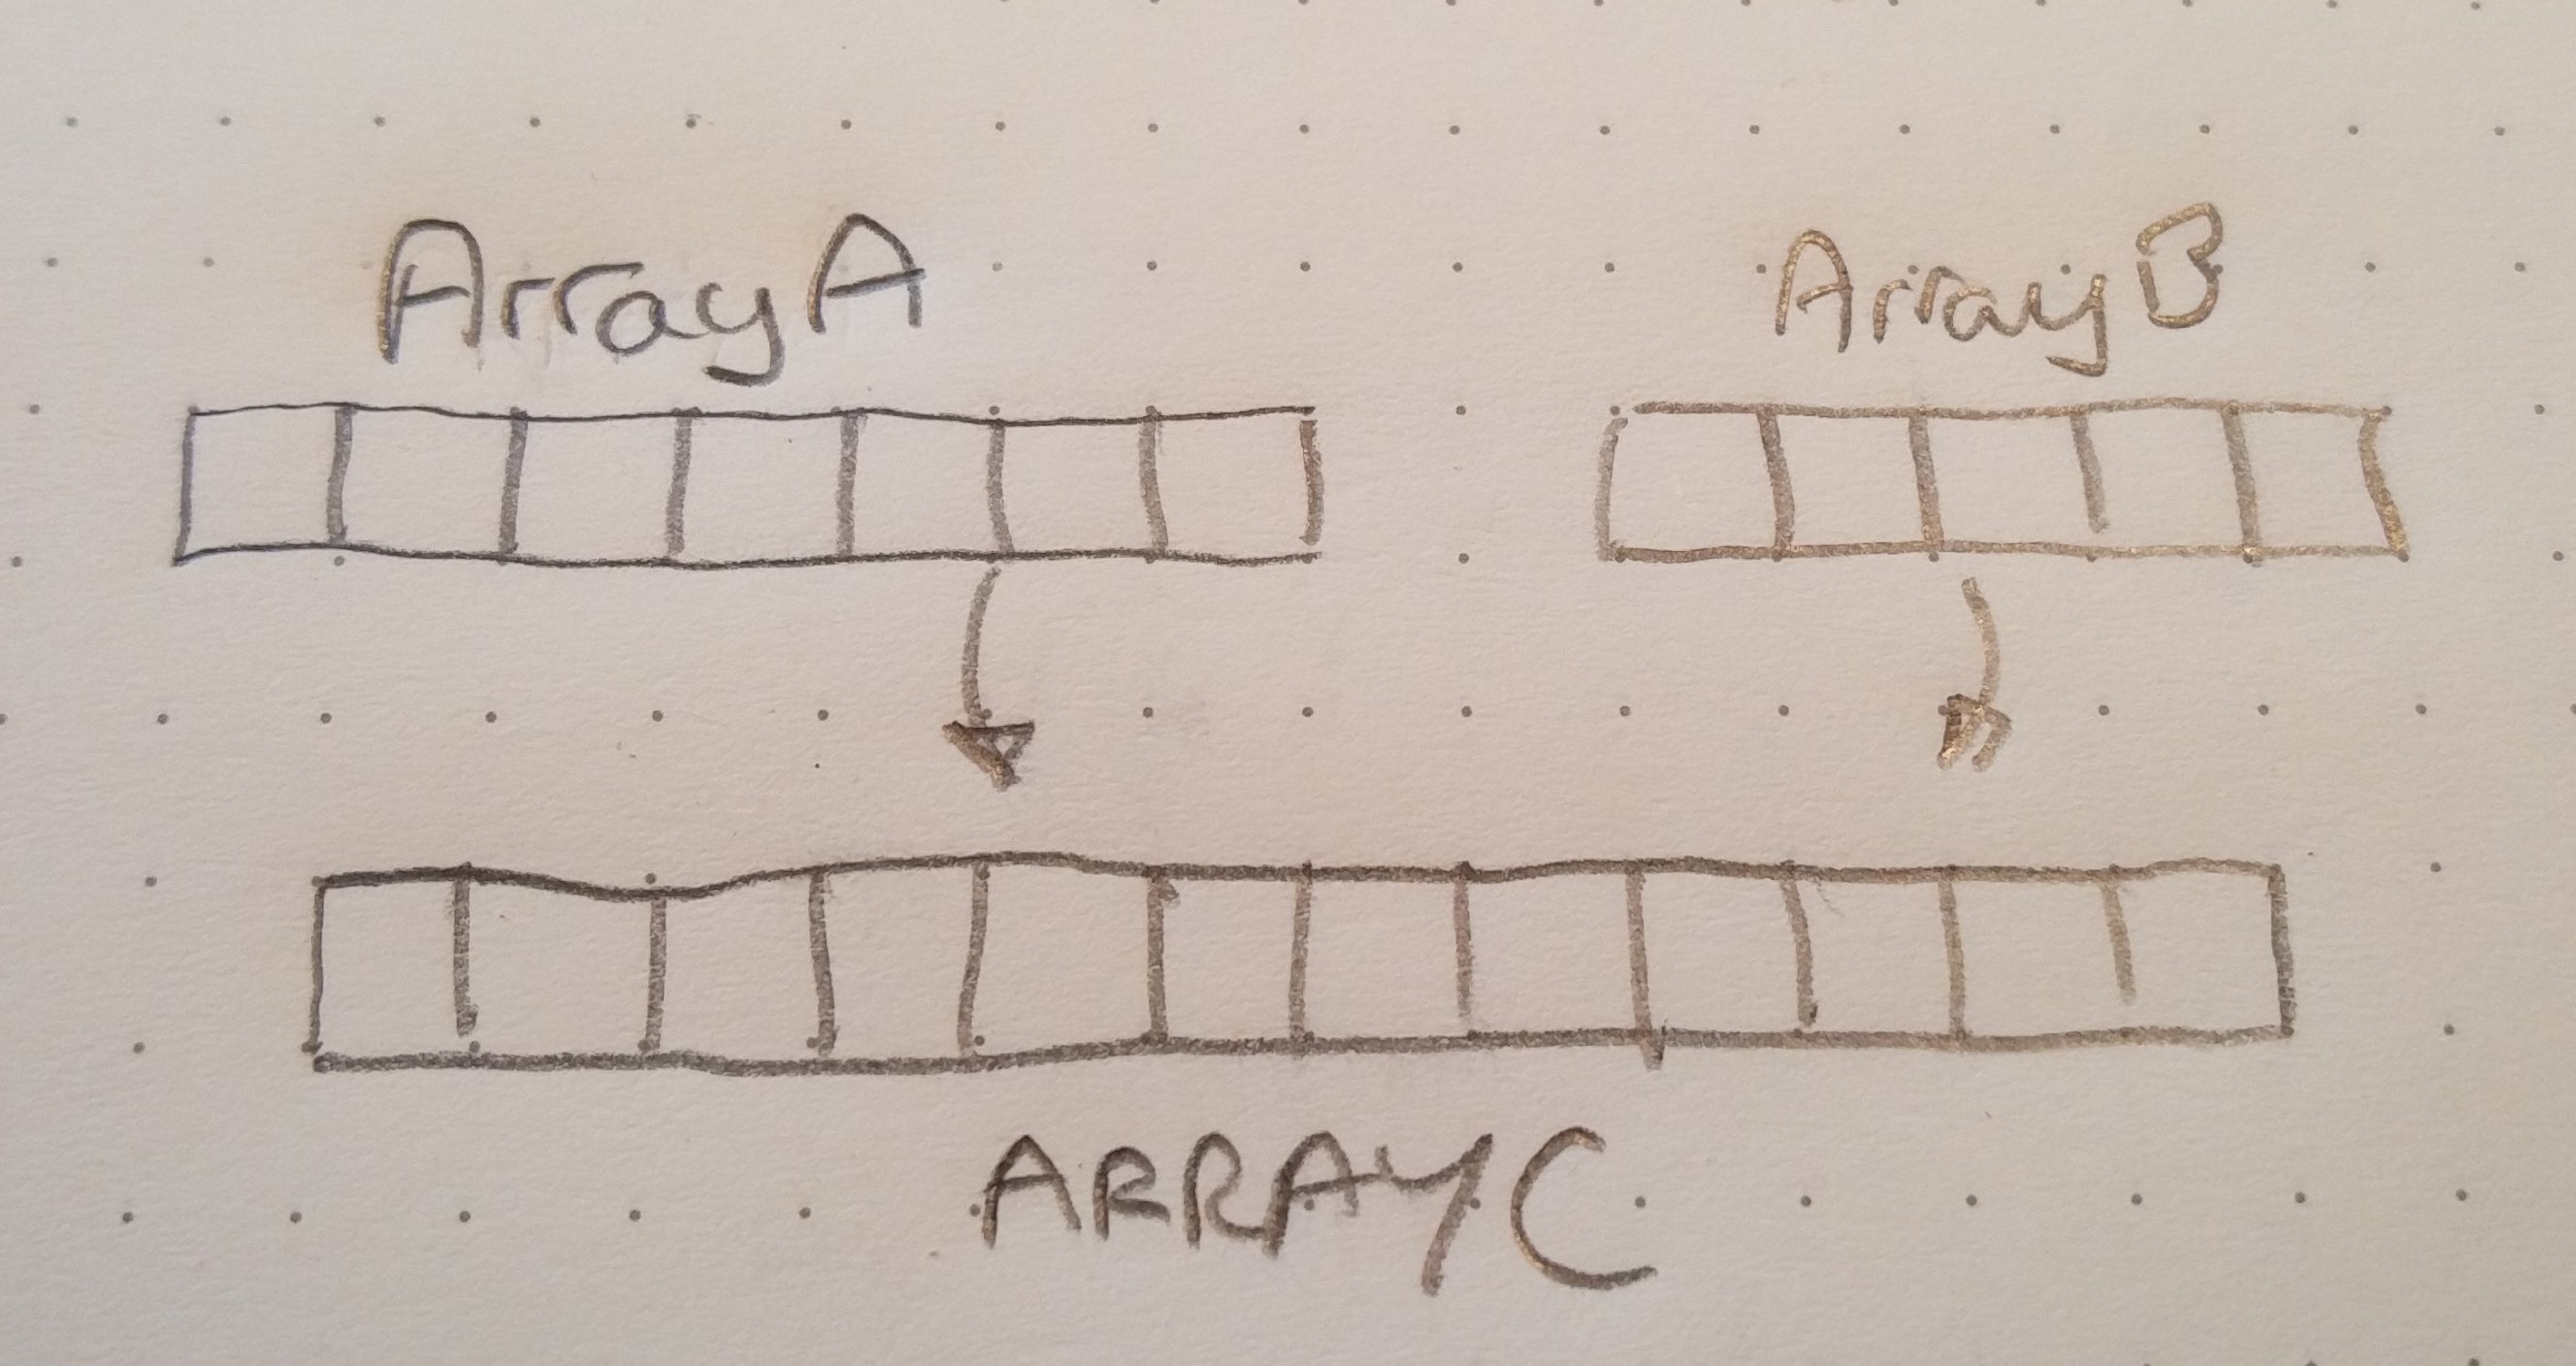 Array A
Array B
ARRAY C